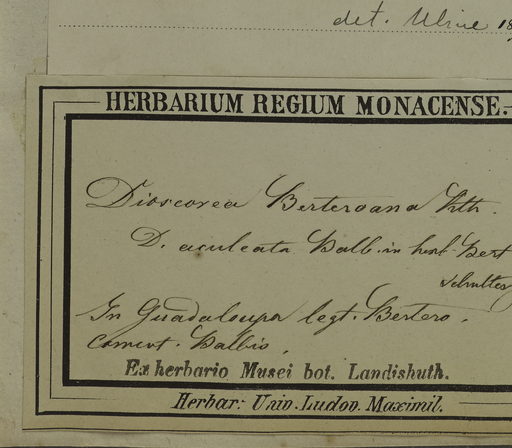 det. Uline 18
HERBARIUM REGIUM MONACENSE.
Dioscorea Berteroana Kth.
D. aculeata Balb. in herb. Bert
Schultes
In Guadaloupa legt. Bertero.
comuct. Balbis.
Ex herbario Musei bot. Landishuth.
Herbar: Univ. Ludov. Maximil.